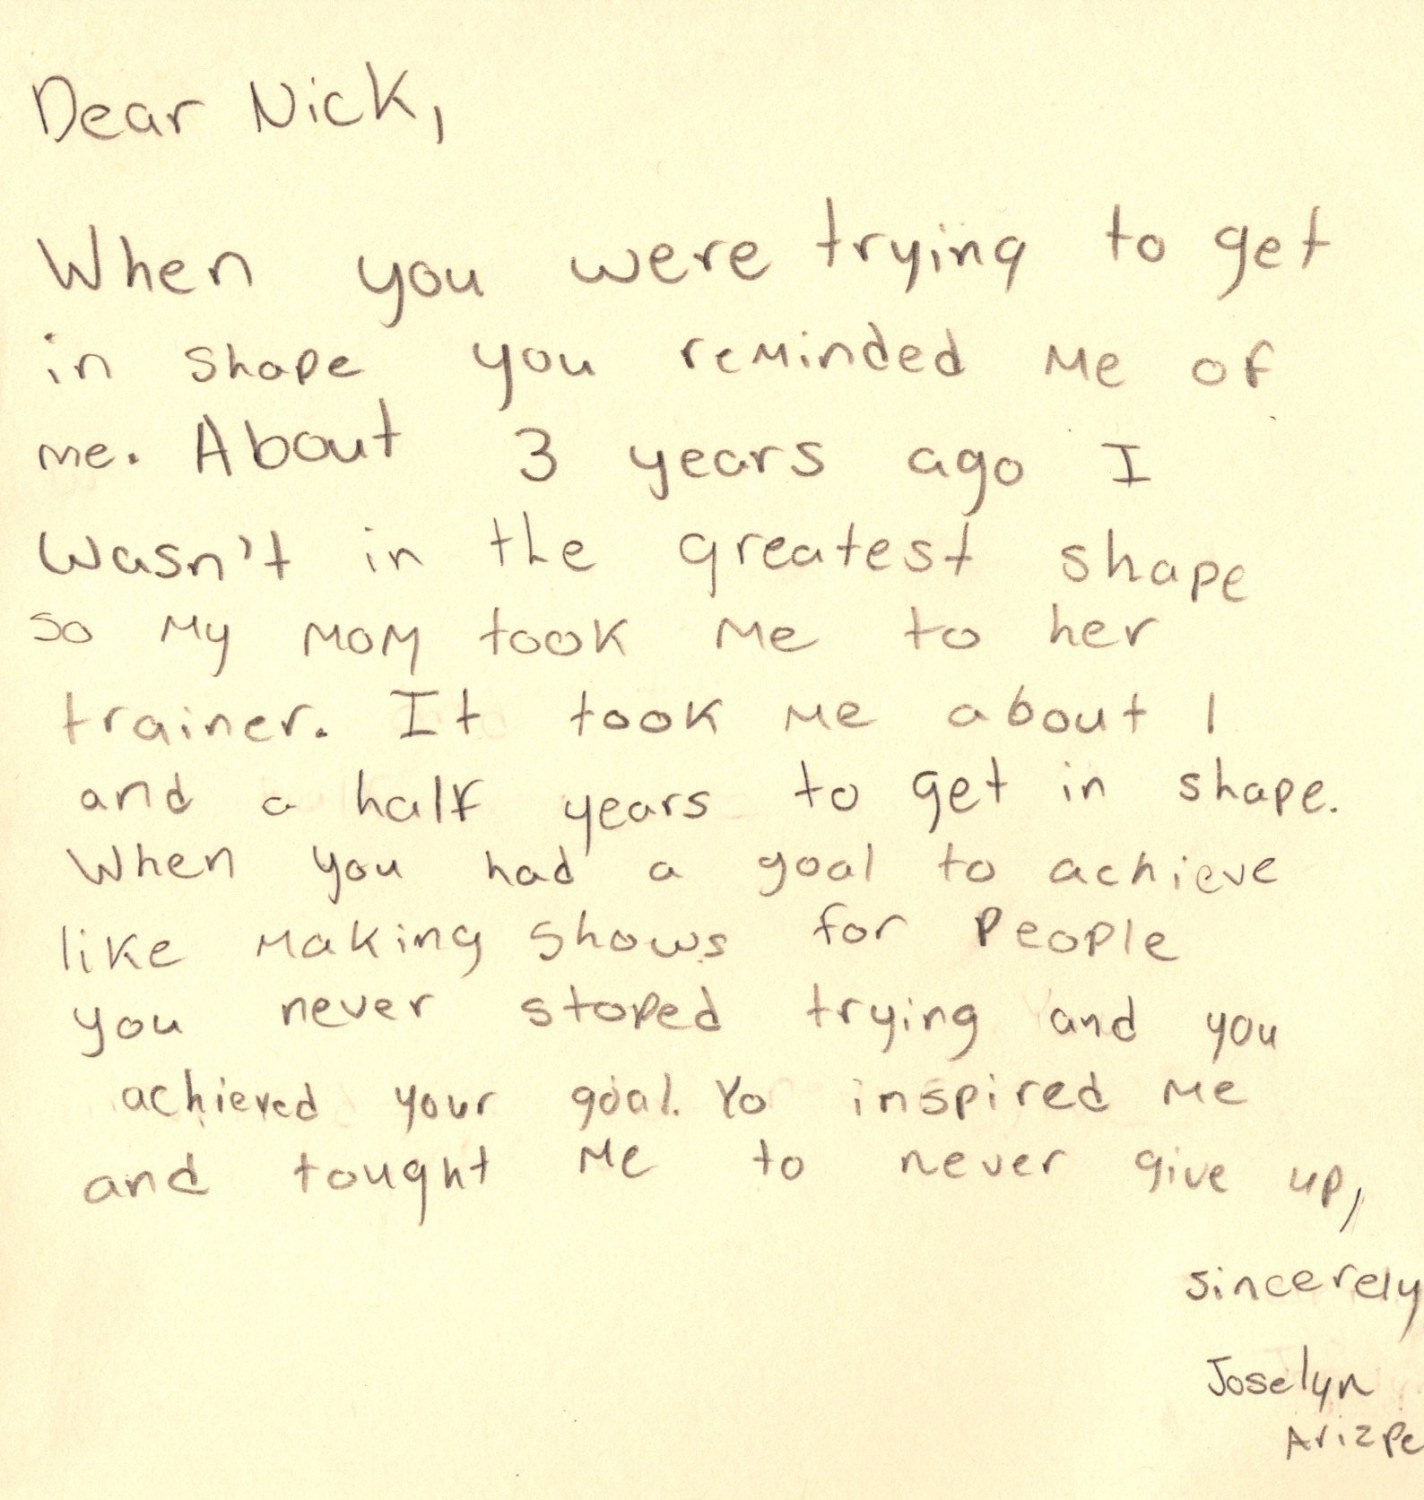 Dear Nick,
When you were trying to get
in shape you reminded me of
me. About 3 years ago I
wasn't in the greatest shape
so my mom took me to her
trainer. It took me about 1
and a half years to get in shape.
When you had a goal to achieve
like making shows for people
you never stoped trying and you
achieved your goal. Yo inspired me
and tought me to never give up,
sincerely
Joselyn
Arizpe